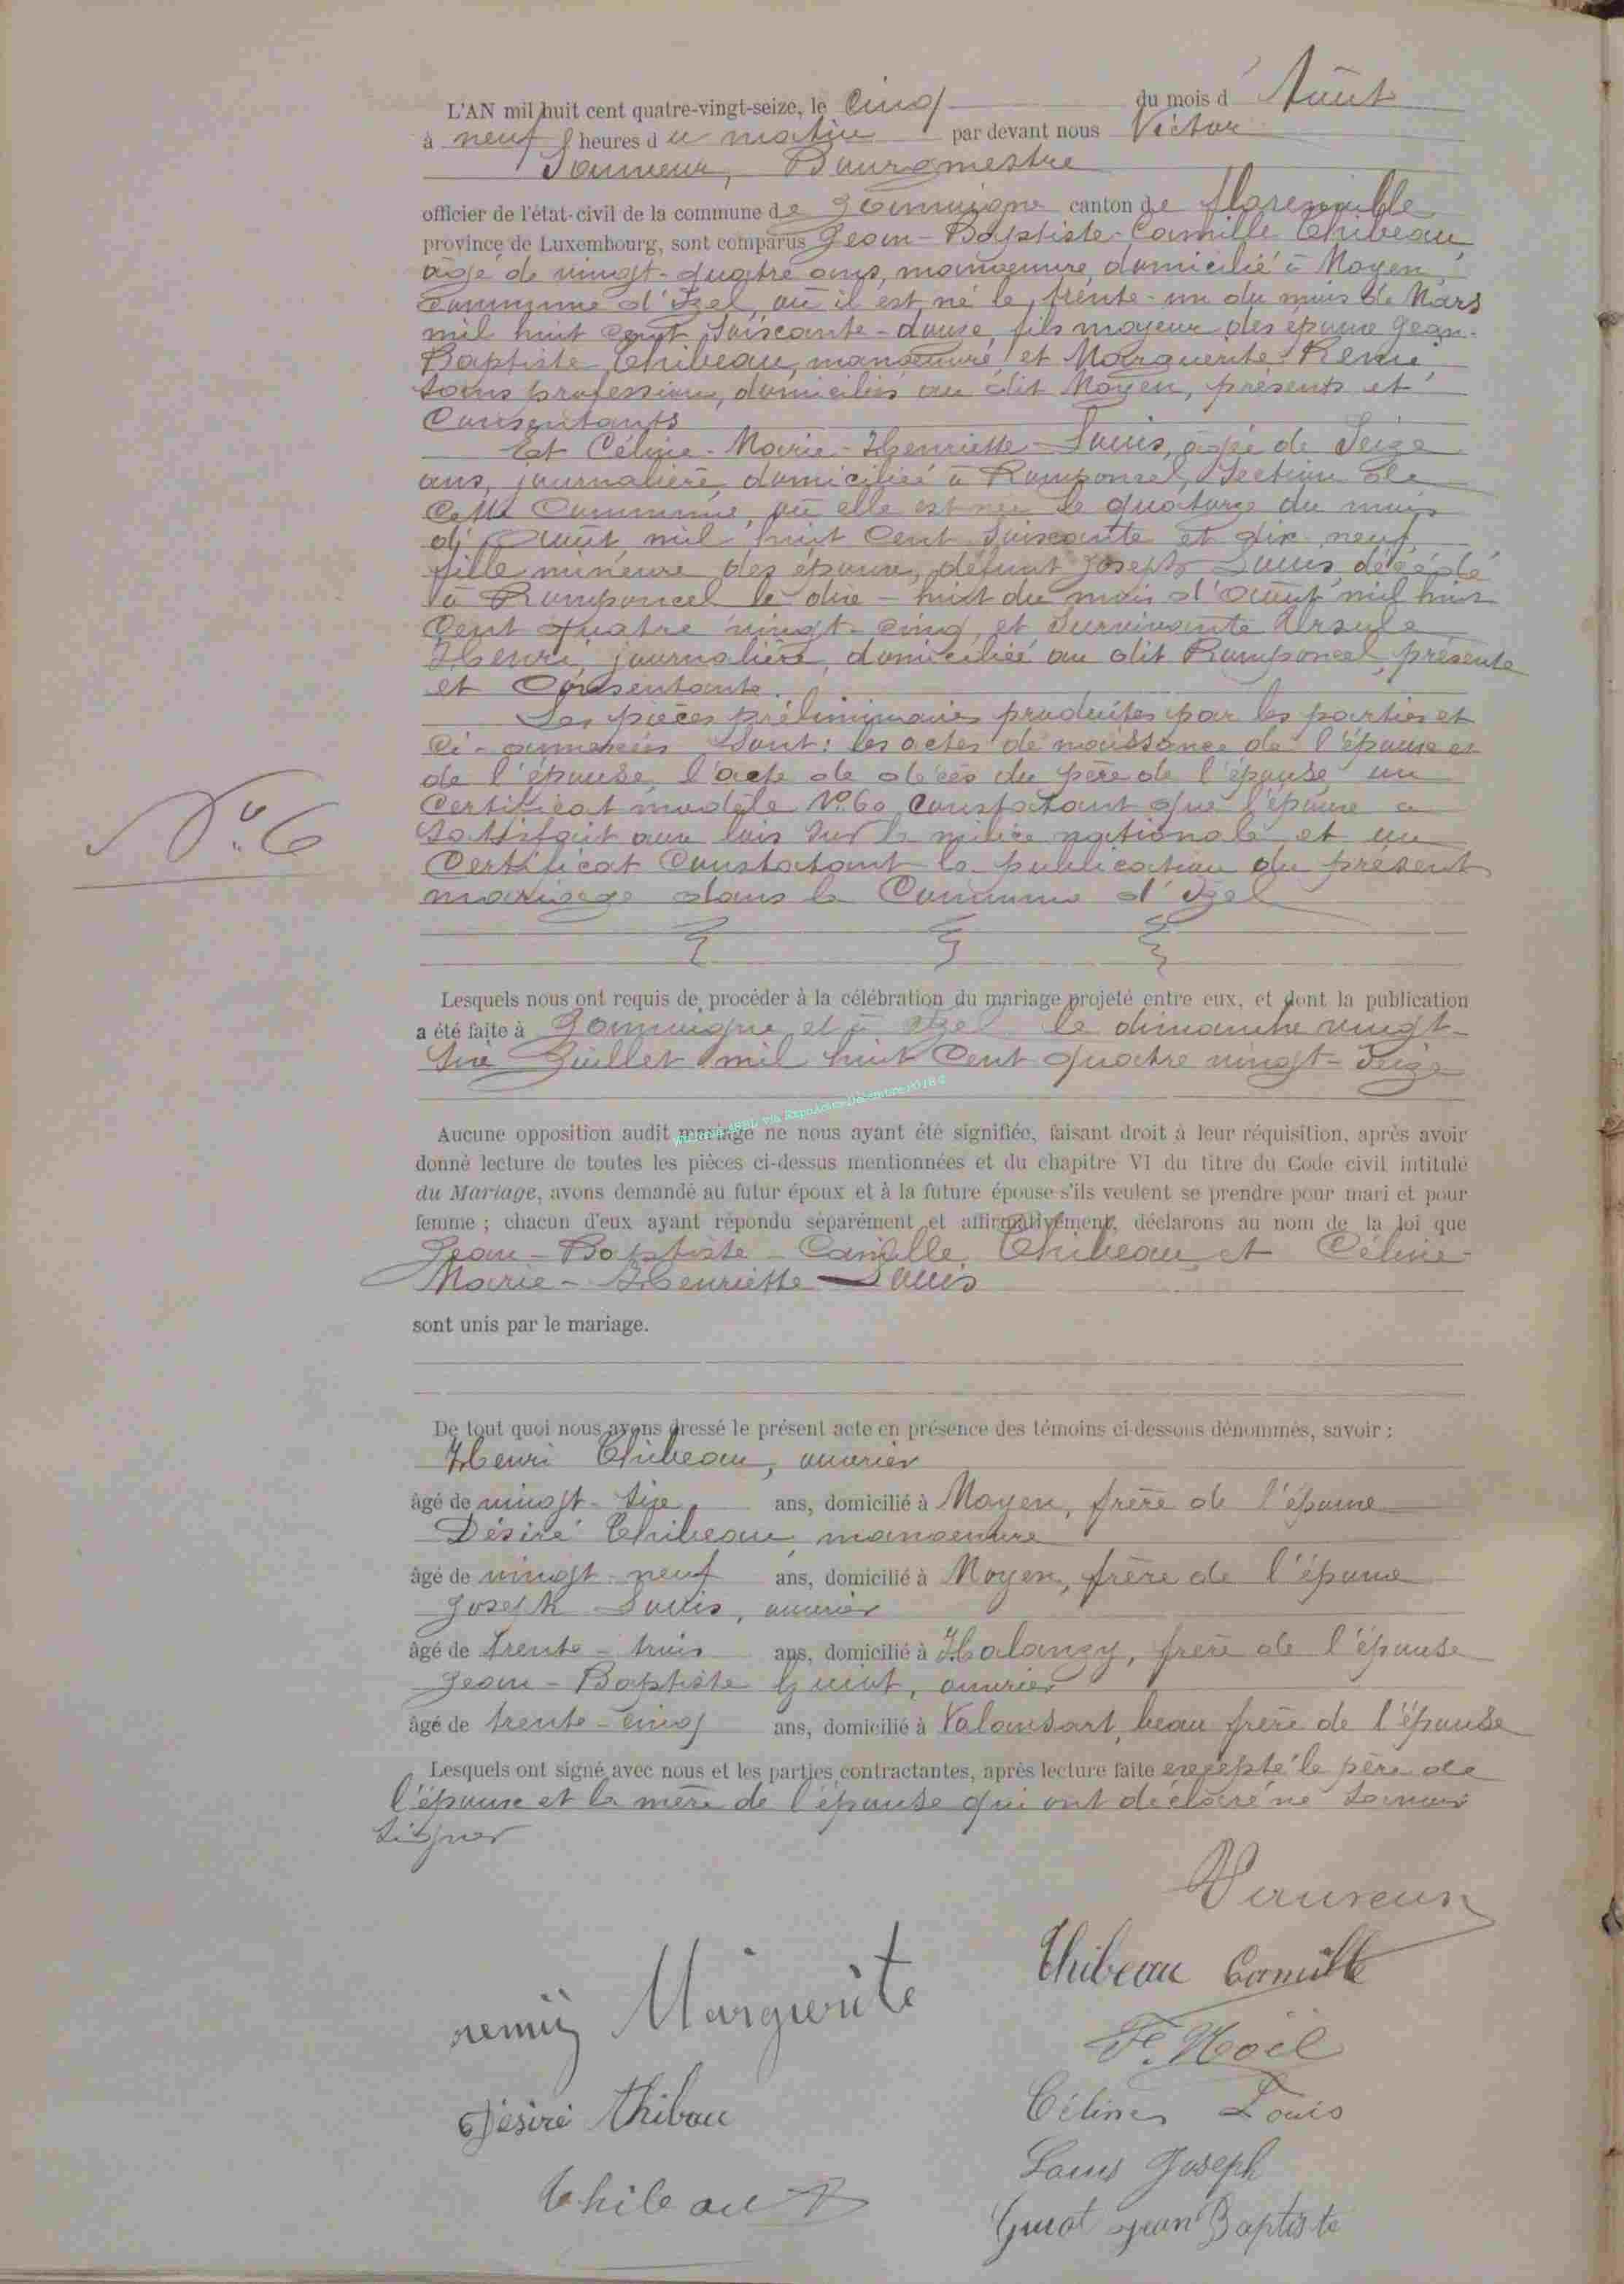 L'AN mil huit cent quatre-vingt-seize, le Cinq du mois d' Août
à neuf heures du matin par devant nous Victor
Bourgmestre
officier de l'état-civil de la commune de Jamoigne canton de Florenville
province de Luxembourg, sont comparus Jean-Baptiste-Camille Thibeau
âgé de vingt-quatre ans, manoeuvre, domicilié à Moyen,
Commune d'Izel, où il est né le trente-un du mois de Mars
mil huit cent soixante-douze, fils majeur des époux Jean-
Baptiste Thibeau, manoeuvre et Marguerite Remi,
sans profession, domiciliés au dit Moyen, présents et
Consentants
Et Céline-Marie-Henriette Louis, âgée de Seize
ans, journalière, domiciliée à Romponcel, Section de
Cette Commune, où elle est née le quatorze du mois
d'Août mil huit Cent Soixante et dix neuf,
fille mineure des époux, défunt Joseph Louis décédé
à Romponcel le dix-huit du mois d'Août mil huit
Cent quatre vingt-cinq, et Survivante Ursule
Henri, journalière, domiciliée au dit Romponcel, présente
et Consentante.
Les pièces préliminaires produites par les parties et
Ci-annexées Sont: les actes de naissance de l'époux et
de l'épouse, l'acte de décès du père de l'épouse un
Certificat modèle N° 60 Constatant que l'époux a
Satisfait aux lois Sur la milice nationale et un
Certificat Constatant la publication du présent
mariage dans la Commune d'Izel
N° 6
Lesquels nous ont requis de procéder à la célébration du mariage projeté entre eux, et dont la publication
a été faite à Jamoigne et à Izel le dimanche vingt-
Six Juillet mil huit Cent quatre vingt-Seize
Aucune opposition audit mariage ne nous ayant été signifiée, faisant droit à leur réquisition, après avoir
donné lecture de toutes les pièces ci-dessus mentionnées et du chapitre VI du titre du Code civil intitulé
du Mariage, avons demandé au futur époux et à la future épouse s'ils veulent se prendre pour mari et pour
femme ; chacun d'eux ayant répondu séparément et affirmativement, déclarons au nom de la loi que
Jean-Baptiste-Camille Thibeau et Céline-
Marie-Henriette Louis
sont unis par le mariage.
De tout quoi nous avons dressé le présent acte en présence des témoins ci-dessous dénommés, savoir :
Henri Thibeau, ouvrier
âgé de vingt-Six ans, domicilié à Moyen, frère de l'époux
Désiré Thibeau, manoeuvre
âgé de vingt-neuf ans, domicilié à Moyen, frère de l'époux
Joseph Louis, ouvrier
âgé de trente-trois ans, domicilié à Halanzy, frère de l'épouse
Jean-Baptiste Guiot, ouvrier
âgé de trente-cinq ans, domicilié à Valansart, beau frère de l'épouse
Lesquels ont signé avec nous et les parties contractantes, après lecture faite excepté le père de
l'époux et la mère de l'épouse qui ont déclaré ne Savoir
Signer
Thibeau Camille
remij Marguerite
Noël
Désiré thibau
Céline Louis
Louis Joseph
thibeau
Guiot Jean Baptiste